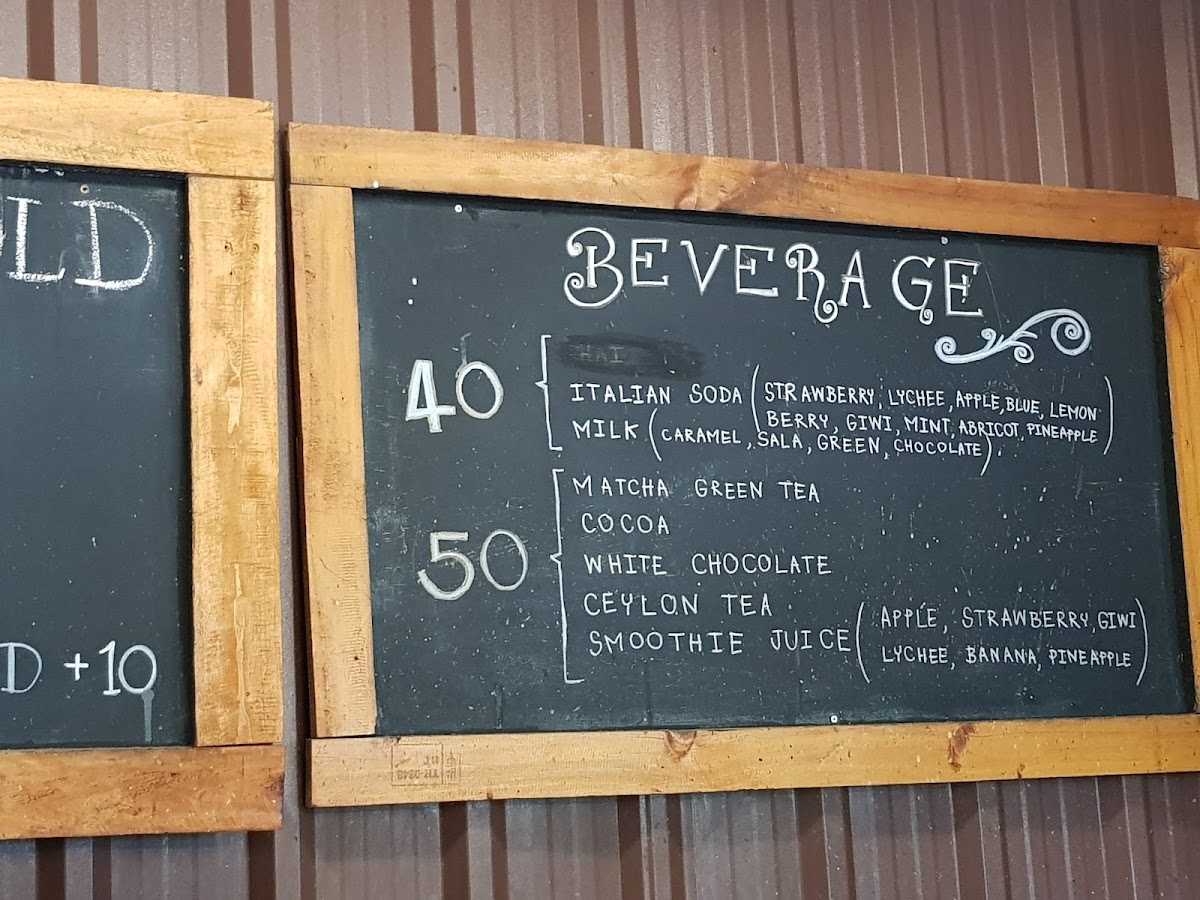 LD
D +10
BEVERAGE
40
ITALIAN SODA (STRAWBERRY, LYCHEE, APPLE, BLUE, LEMON
BERRY, GIWI, MINT, ABRICOT, PINEAPPLE)
MILK (CARAMEL, SALA, GREEN, CHOCOLATE)
50
MATCHA GREEN TEA
COCOA
WHITE CHOCOLATE
CEYLON TEA
SMOOTHIE JUICE (APPLE, STRAWBERRY, GIWI
LYCHEE, BANANA, PINEAPPLE)